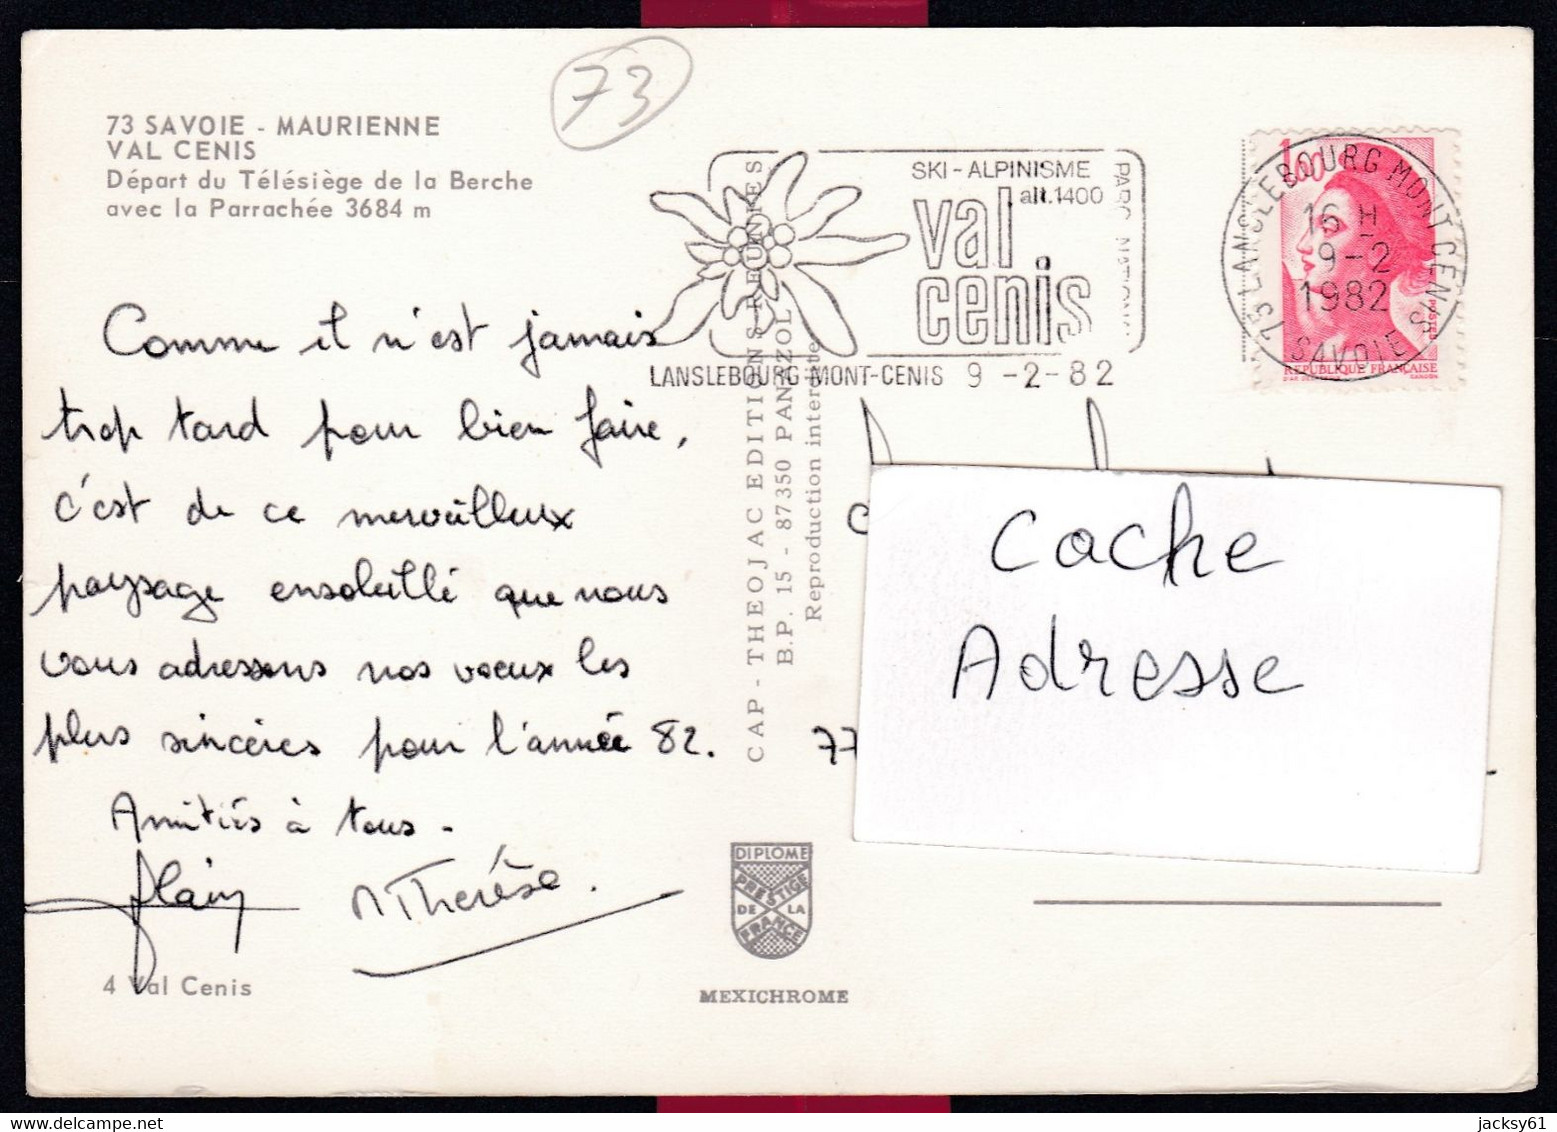 73
73 SAVOIE - MAURIENNE
VAL CENIS
Départ du Télésiège de la Berche
avec la Parrachée 3684 m
SKI - ALPINISME
alt.1400
val
cenis
PARC NATIONAL
LANSLEBOURG MONT-CENIS 9 -2- 82
73 LANSLEBOURG MONT CENIS
16 H
9-2
1982
SAVOIE
1,60
POSTES
REPUBLIQUE FRANÇAISE
Comme il n'est jamais
trop tard pour bien faire,
c'est de ce merveilleux
paysage ensoleillé que nous
vous adressons nos voeux les
plus sincères pour l'année 82.
Amitiés à tous.
Alain M Therèse.
4 Val Cenis
CAP - THEOJAC EDITIONS REUNIES
B.P. 15 - 87350 PANAZOL
Reproduction interdite
Cache
Adresse
77
DIPLOME
PRESTIGE
DE LA
FRANCE
MEXICHROME
jacksy61